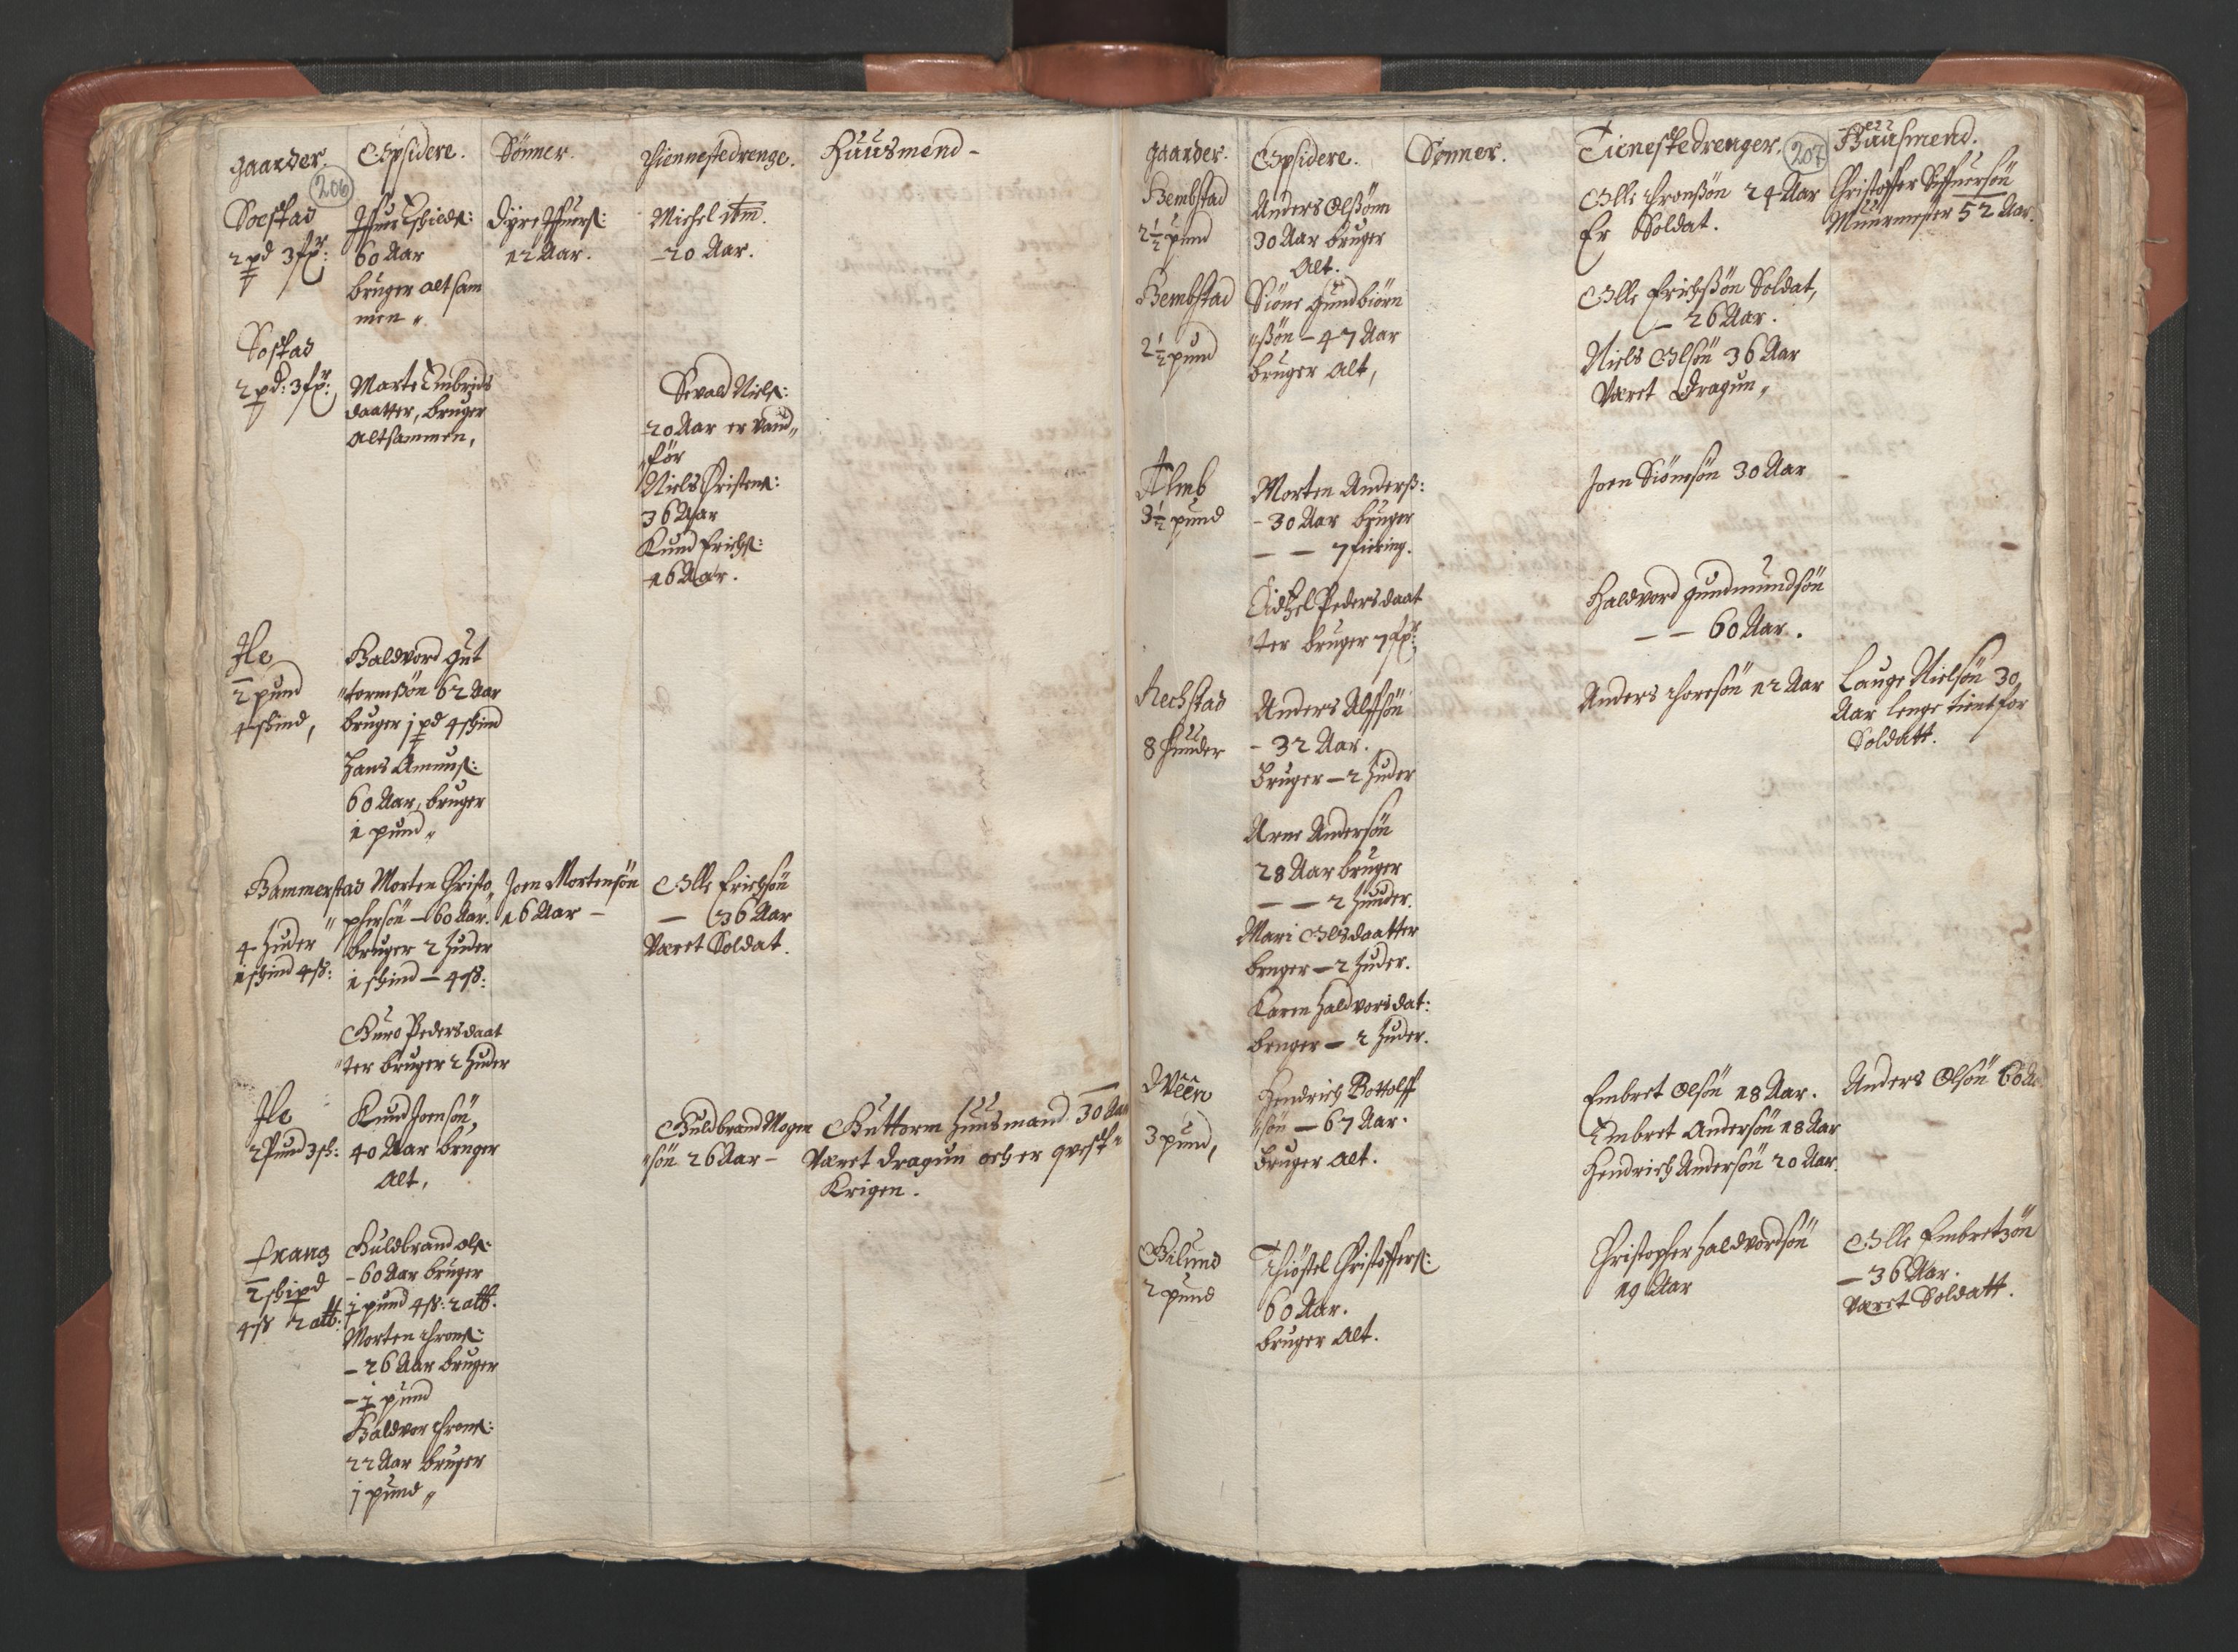 gaarder. Opsidere. Sönner. Thiennestedrenge. Huusmend -
206
Soestad
2 pd 3 fr:
Iffuer Eskilds:
60 Aar
bruger alt sam
men „
Dyre Iffuers:
12 Aar.
Michel ibm.
- 20 Aar.
Sostad
2 pd: 3 fr:
Marte Embrids
daatter, bruger
altsammen,
Sevald Niels:
20 Aar er vand„
„för
Niels Christens:
36 Aar
Knud Erichs:
16 Aar.
Ile
2 pund
4 skind,
Haldvord Gut
„tormssön 62 Aar
bruger j pd 4 skind
Hans Amuns:
60 Aar, bruger
1 pund „
Hammerstad
4 huder
1 skind 4 ß:
Morten Christo„
„phersön - 60 Aar.
bruger 2 huder
1 skind - 4 ß:
Joen Mortensön
16 Aar -
Olle Erichsön
- 36 Aar
Været Soldat.
Guro Pedersdaat
„ter bruger 2 huder
Ile
2 Pund 3 sk:
Knud Joensön,
40 Aar bruger
Alt,
Guldbrand Mogen
„sön 26 Aar -
Guttorm Huusmand 30 Aar
Været dragun och er qvest„
Krigen.
Frang
2 skipd
4 ß 2 alb:
Guldbrand Ols:
- 60 Aar bruger
j pund 4 ß: 2 alb.
Morten Throns:
- 26 Aar bruger
- j pund
Haldvor Throns:
22 Aar bruger
j pund „
gaarder. Opsidere. Sönner. Tienestedrenger. 207 Huusmend.
Bembstad
2 1/2 pund
Anders Olssönn
30 Aar bruger
Alt.
Olle Thronssön 24 Aar
Er Soldat.
Christoffer
Muurmester 52 Aar.
Bembstad
2 1/2 pund
Siöne Gundbiörn
„ssön - 47 Aar
bruger Alt,
Olle Erichssön Soldat,
- 26 Aar.
Niels Olsön 36 Aar
Været Dragun „
Alm
3 1/2 pund
Morten Anderss:
- 30 Aar bruger
- - 7 fiering.
Joen Siönesön 30 Aar
Pedersdaat
„ter bruger 7 fr:
Haldvord Gundmundsön
- - 60 Aar.
Rechstad
8 Huuder
Anders Alffsön
- 32 Aar.
Bruger - 2 huder
Anders Thoresön 12 Aar
Lauge Nielsön 30
Aar lenge tient for
Soldatt.
Arne Andersön
28 Aar bruger
- - 2 huuder.
Mari Olsdaatter
bruger - 2 huder.
Karen Haldvorsdat:
bruger - 2 huder.
Dvéen
3 pund,
Hendrich Bottolff
„sön - 67 Aar.
Bruger Alt.
Embret Olsön 18 Aar.
Embret Andersön 18 Aar
Hendrich Andersön 20 Aar.
Anders Olsön 60 A
Gilund
2 pund
Thiöstel Christoffers:
60 Aar.
bruger Alt.
Christopher Haldvordsön
19 Aar
Olle Embretzön
- 36 Aar.
Været Soldatt.